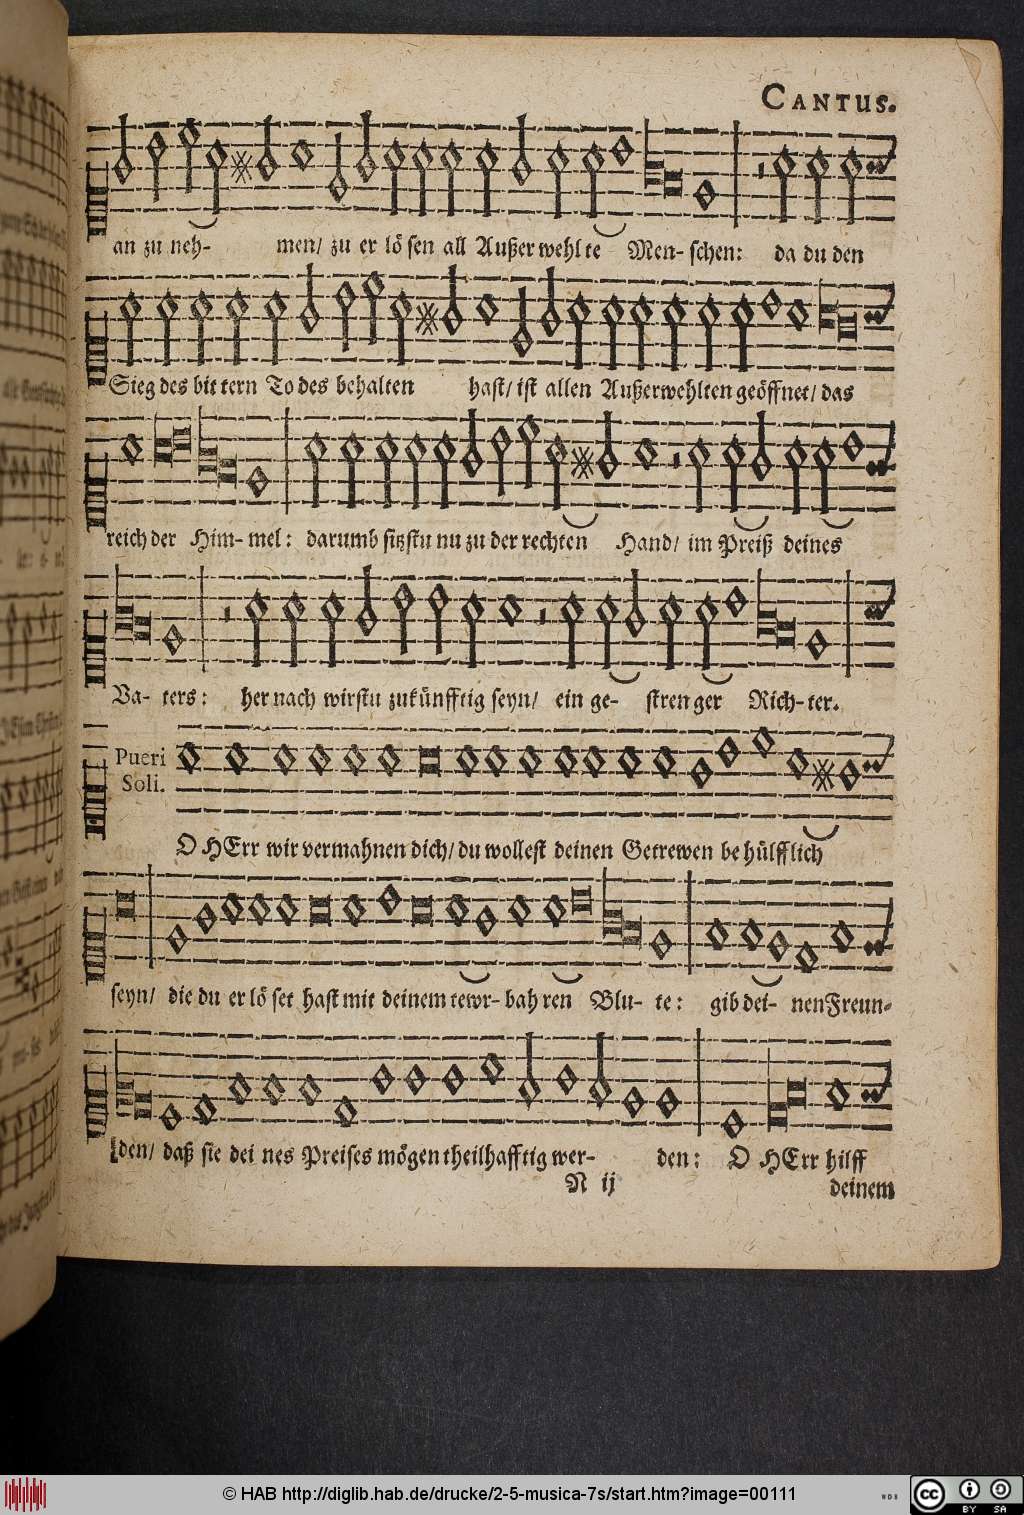 CANTUS.
an zu neh- men/ zu er lö sen all Außer wehl te Men- schen: da du den
Sieg des bit tern To des behalten hast/ ist allen Außerwehlten geöffnet/ das
reich der Him- mel: darumb sitzstu nu zu der rechten Hand/ im Preiß deines
Va- ters: her nach wirstu zukünfftig seyn/ ein ge- stren ger Rich- ter.
Pueri
Soli.
O HErr wir vermahnen dich/ du wollest deinen Getrewen be hülfflich
seyn/ die du er lö set hast mit deinem tewr- bah ren Blu- te: gib dei- nen Freun-
[den/ daß sie dei nes Preises mögen theilhafftig wer- den: O HErr hilff
N ij
deinem
© HAB http://diglib.hab.de/drucke/2-5-musica-7s/start.htm?image=00111
WDB
cc
BY SA